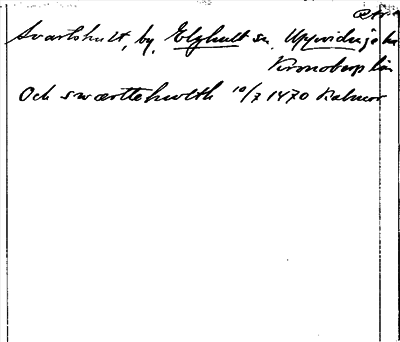 Svartshult, by, Elghult sn. Uppvidinge hd
Kronoberg län
Och swærttehwlth 10/7 1470 Kalmar